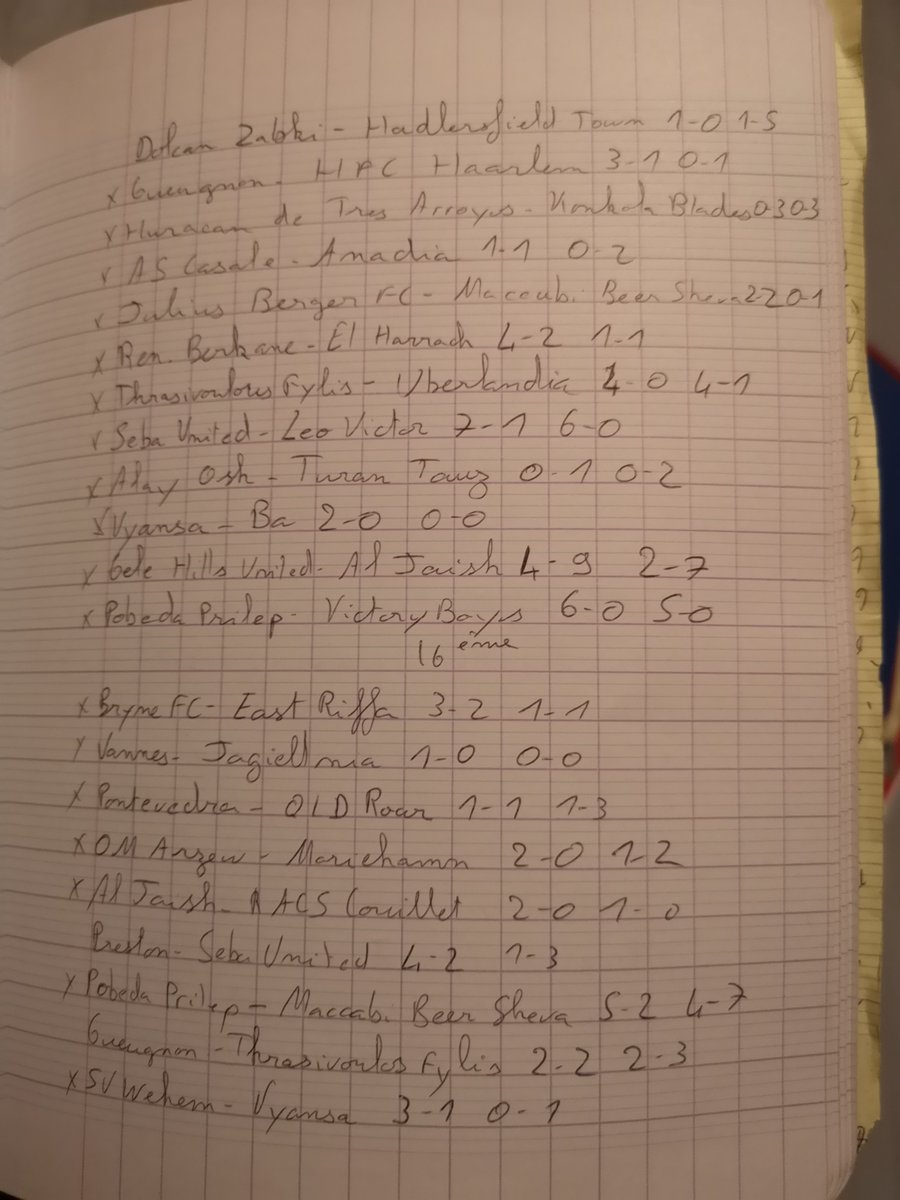 Dolcan Zabki - Hadlersfield Town 1-0 1-5
x Gueugnon - HFC Haarlem 3-1 0-1
x Huracan de Tres Arroyos - Konkola Blades 0-3 0-3
x AS Casale - Amadia 1-1 0-2
x Julius Berger FC - Maccabi Beer Sheva 2-2 0-1
x Ren. Berkane - El Harrach 4-2 1-1
x Thrasivoulos Fylis - Uberlandia 4-0 4-1
x Seba United - Leo Victor 7-1 6-0
x Alay Osh - Turan Tauz 0-1 0-2
x Vyansa - Ba 2-0 0-0
x Gele Hills United - Al Jaish 4-9 2-7
x Pobeda Prilep - Victory Boys 6-0 5-0
16ème
x Bryne FC - East Riffa 3-2 1-1
x Vannes - Jagiellonia 1-0 0-0
x Pontevedra - OLD Roar 1-1 1-3
x OM Arzew - Mariehamn 2-0 1-2
x Al Jaish - RACS Couillet 2-0 1-0
Preston - Seba United 4-2 1-3
x Pobeda Prilep - Maccabi Beer Sheva 5-2 4-7
Gueugnon - Thrasivoulos Fylis 2-2 2-3
x SV Wehem - Vyansa 3-1 0-1